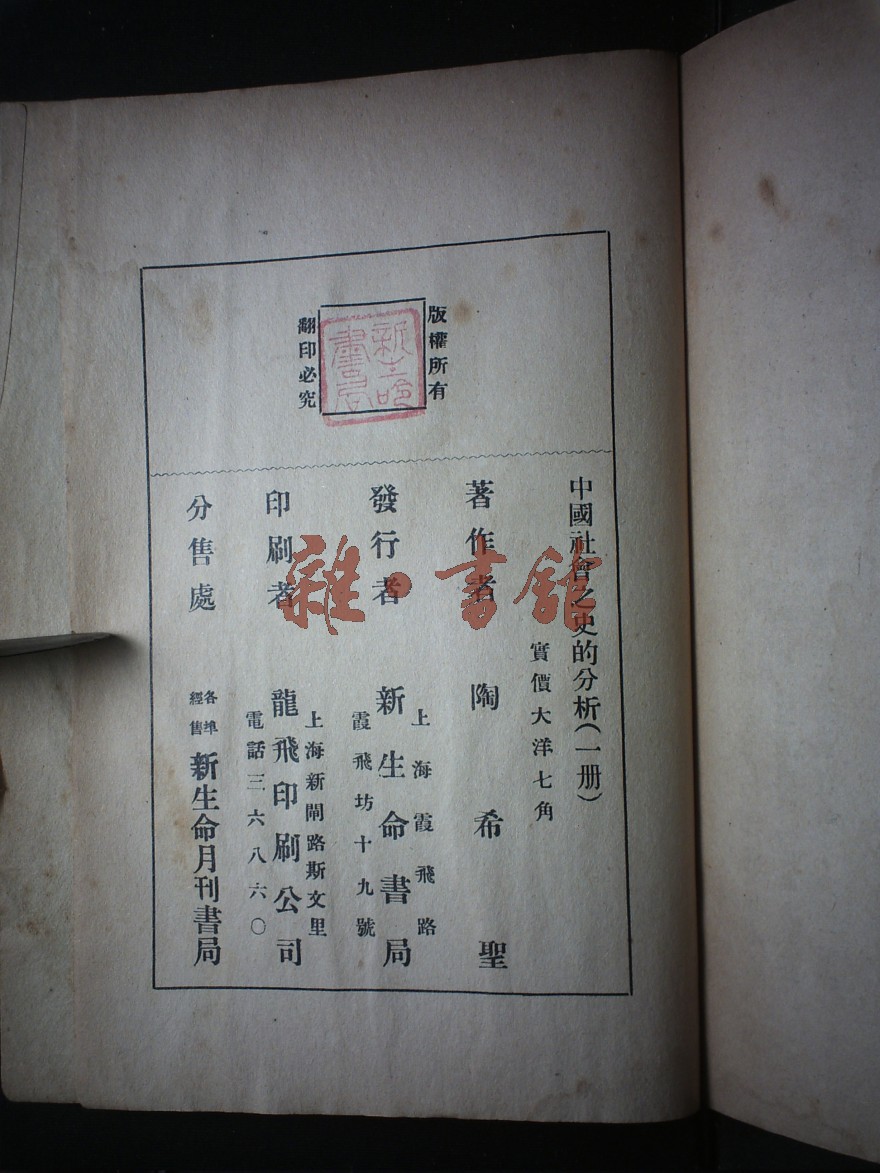 版權所有
新生命書局
翻印必究
中國社會之史的分析（一册）
實價大洋七角
著作者 陶希聖
發行者 新生命書局
上海霞飛路
霞飛坊十九號
印刷者 龍飛印刷公司
上海新閘路斯文里
電話三六八六〇
分售處 各埠經售 新生命月刊書局
雜·書館